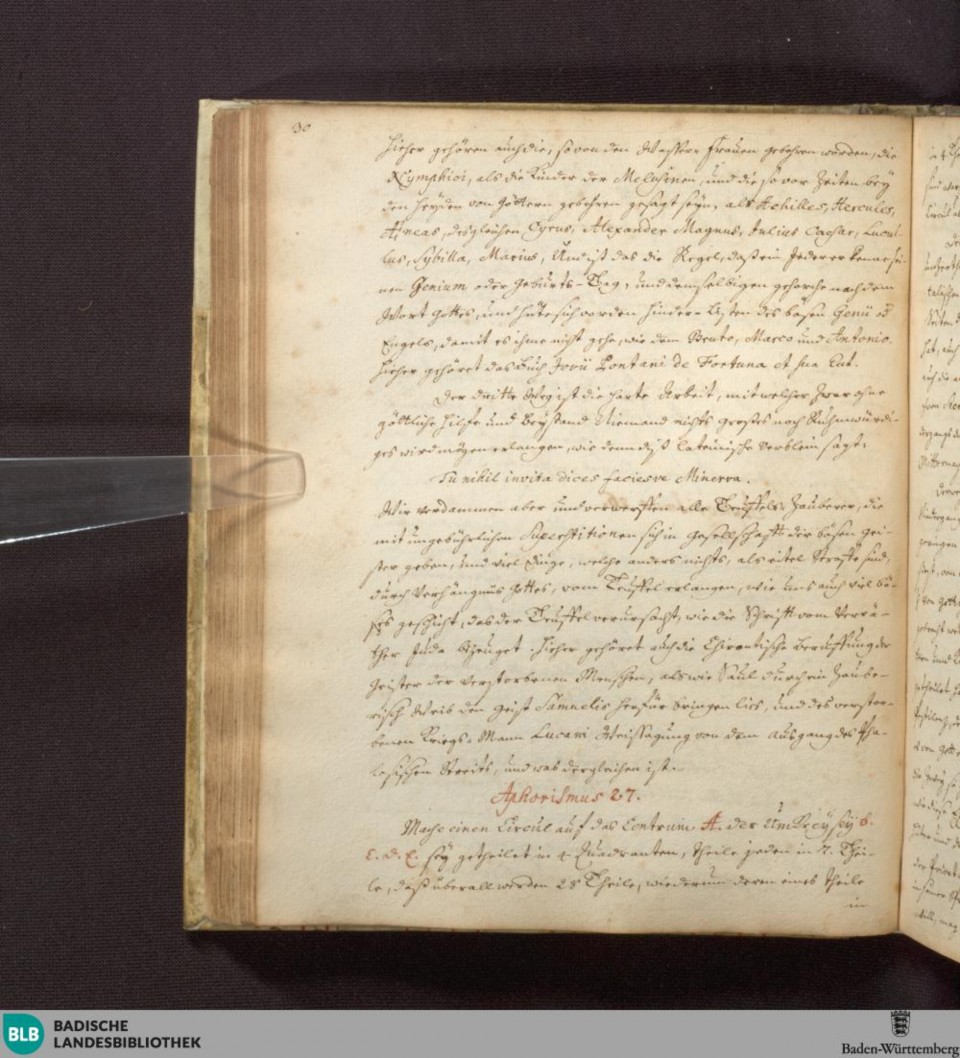 30
Hieher gehören auch die, so von den Wasser-Frauen gebohren worden, die
Nymphidi, als die Kinder der Melusinen, und die so vor Zeiten bey
den Heyden von Göttern gebohren gesagt seyn, als Achilles, Hercules,
Æneas, desgleichen Cyrus, Alexander Magnus, Julius Caesar, Lucul-
lus, Sybilla, Marius, Und ist das die Regel, daß ein Jederer kenne sei-
nen Genium oder Geburts-Tag, und demselbigen gehorche nach dem
Wort Gottes, und hüte sich vor den hinder-Listen des bösen Genii oder
Engels, damit es ihme nicht gehe, wie dem Bruto, Marco und Antonio.
Hieher gehöret das Buch Jovii Pontani de Fortuna et sua Eut.
Der dritte Weg ist die harte Arbeit, mit welcher zwar ohne
göttliche Hilfe und Beystand Niemand nichts großes noch Ruhmwürdi-
ges wird mögen erlangen, wie denn diß Lateinische Verslein sagt:
Tu nihil invita dices faciesve Minerva.
Wir verdammen aber und verwerffen alle Teuffels-Zauberer, die
mit ungebührlichen Superstitionen sich in Gesellschafft der bösen Gei-
ster geben, und viel Dinge, welche anders nichts, als eitel Straffe sind,
durch Verhängnüs Gottes, vom Teuffel erlangen, wie uns auch viel bö-
ses geschicht, das der Teuffel verursacht, wie die Schrifft vom Verrä-
ther Juda Zeuget. Hieher gehöret auch die Beruffung der
Geister der verstorbenen Menschen, als wie Saul durch ein Zaube-
risch Weib den Geist Samuelis herfür bringen lies, und des verstor-
benen Kriegs-Mann Lucani Weissagung von dem Ausgang des Pha-
lasischen Streits, und was dergleichen ist.
Aphorismus 27.
Mache einen Circul auf das Centrum A. der Umkreys sey B.
C. D. E. sey getheilet in 4 Quadranten, theile jeden in 7. Thei-
le, daß überall werden 28 Theile, wiederum deren eines Theile
in
BLB
BADISCHE
LANDESBIBLIOTHEK
Baden-Württemberg